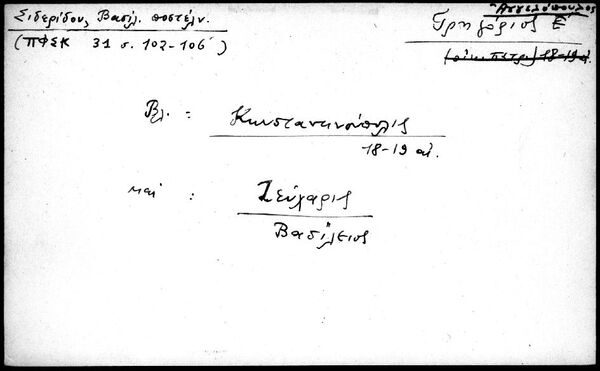 Σιδερίδου, Βασιλ. ποστέλν.
(ΠΦΣΚ 31 σ. 102-106)
Ἀγγελόπουλος
Γρηγόριος Ε
18-19 αἰ.
Βλ. : Κωνσταντινούπολις
18-19 αἰ.
και :
Βασίλειος